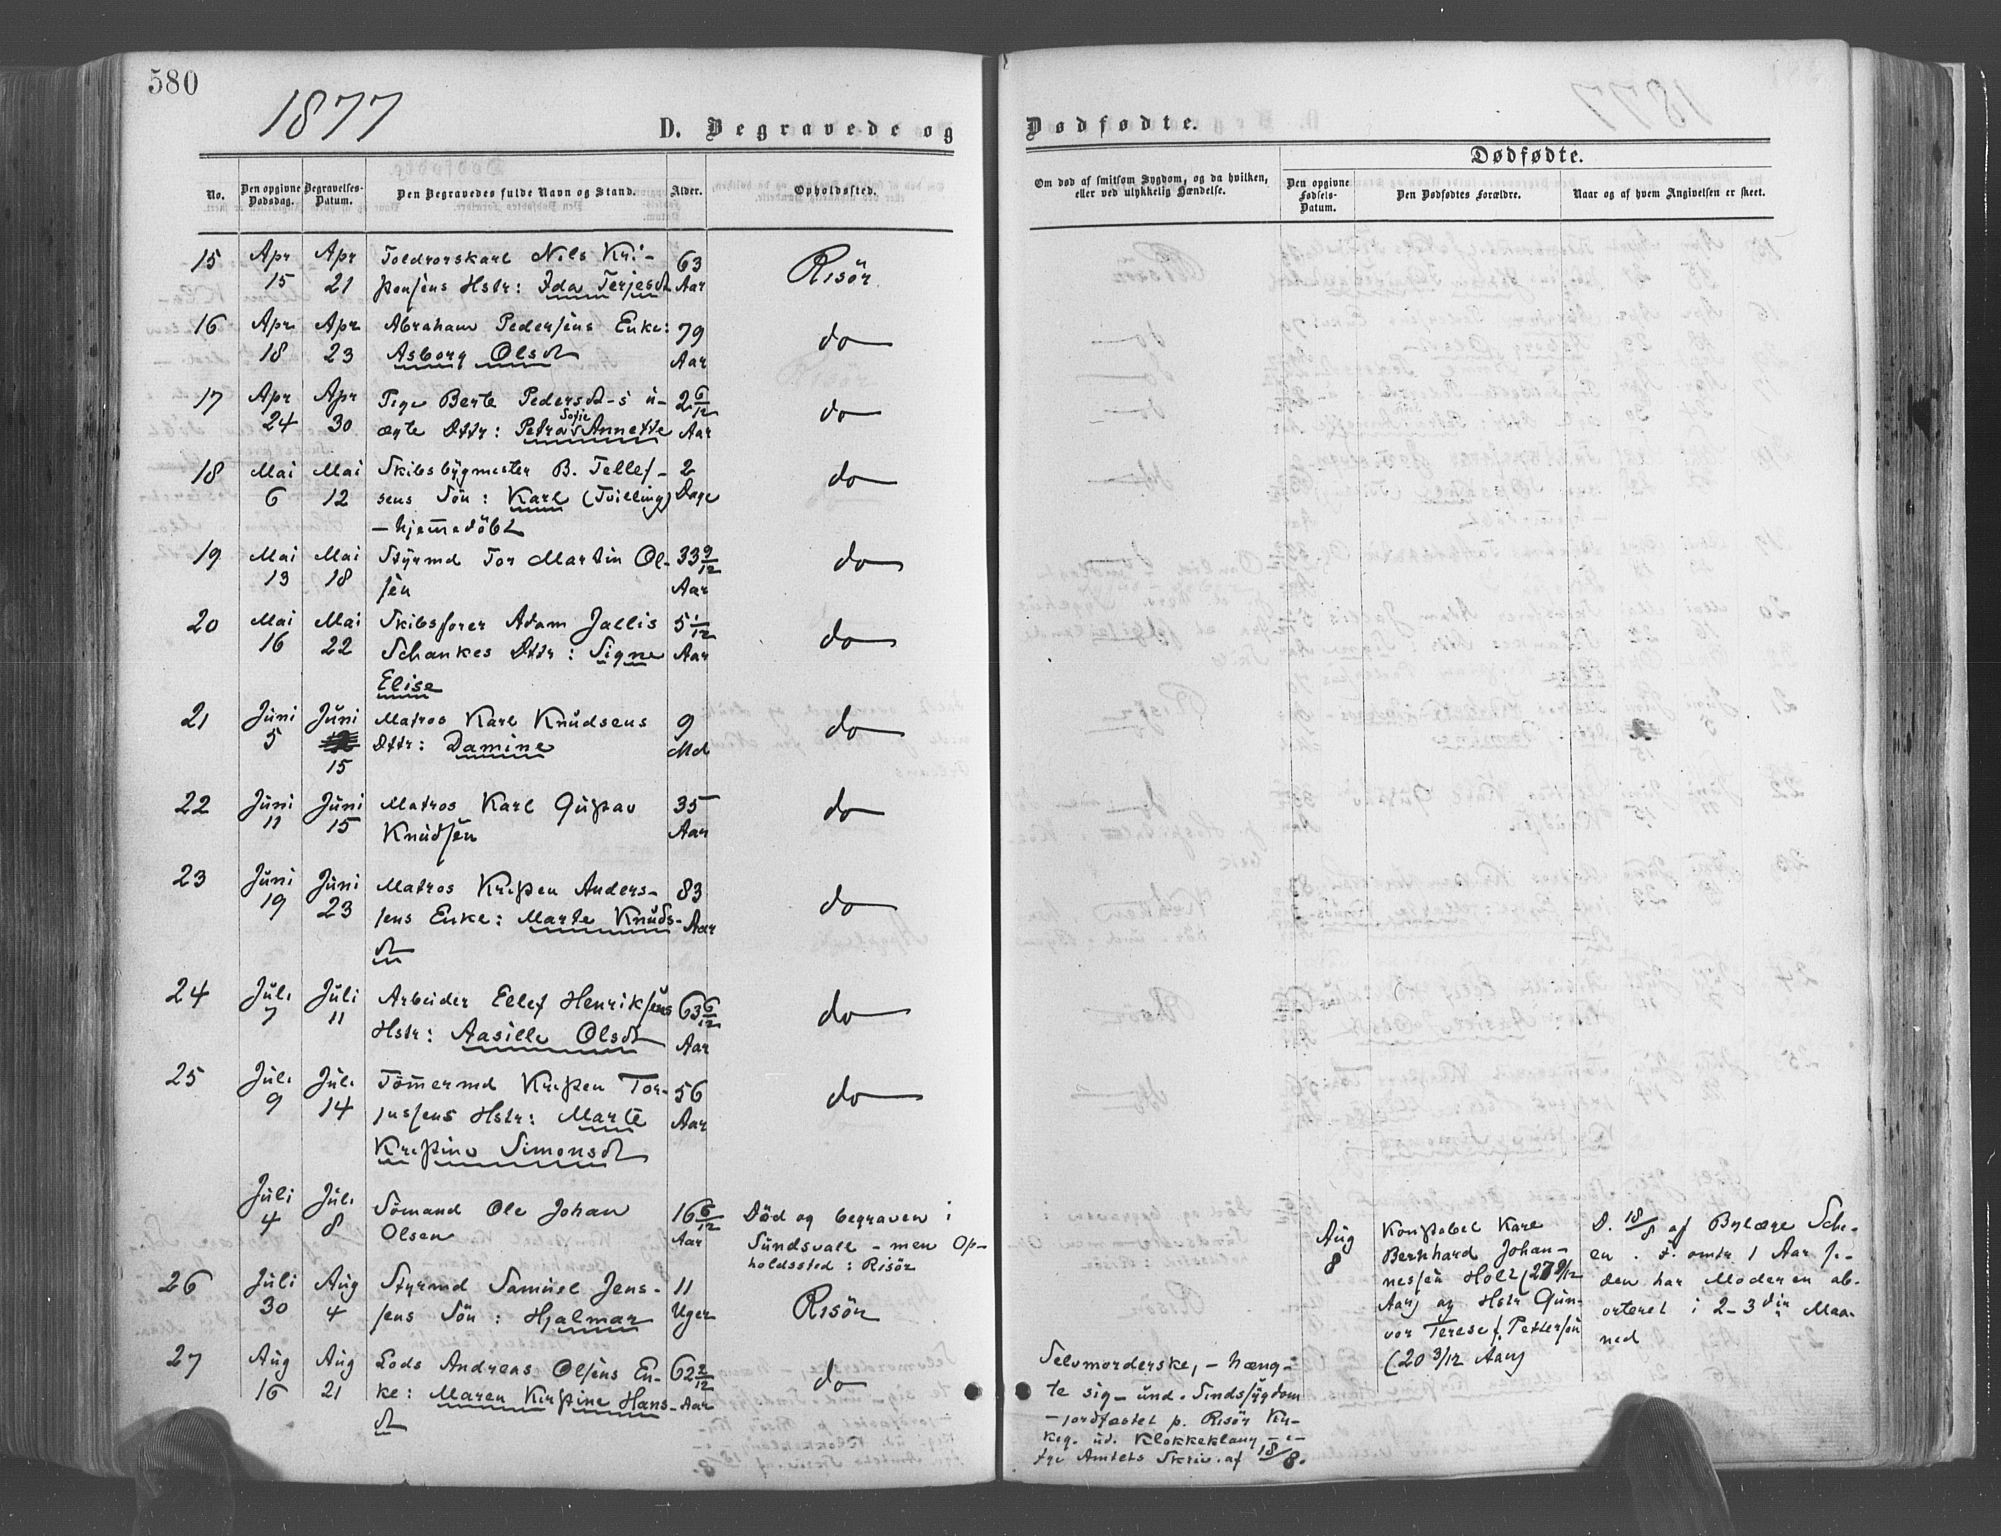 580
1877
D. Begravede og Dødfødte.
Dødfødte.
No. Den opgivne Dødsdag. Begravelses-Datum. Den Begravedes fulde Navn og Stand. Alder. Opholdssted. Om død af smitsom Sygdom, og da hvilken, eller ved ulykkelig Hændelse. Den opgivne Fødsels-Datum. Den Dødfødtes Forældre. Naar og af hvem Angivelsen er skeet.
15 Apr Apr Toldrorskarl Nils Kri- 63 Risör
15 21 stensens Hstr: Ida Terjesdt Aar
16 Apr Apr Abraham Pedersens Enke: 79 do
18 23 Asborg Olsdt Aar
17 Apr Apr Pige Berte Pedersdt-s u- 2 6/12 do
24 30 ægte Dttr: Petra Sofie Annette Aar
18 Mai Mai Skibsbygmester B. Tellef- 2 do
6 12 sens Sön: Karl (Tvilling) Dage
- hjemmedöbt
19 Mai Mai Styrmd Tor Martin Ol- 33 9/12 do
13 18 sen Aar
20 Mai Mai Skibsförer Adam Jallis 5 1/12 do
16 22 Schankes Dttr: Signe Aar
Elise
21 Juni Juni Matros Karl Knudsens 9 do
5 15 Dttr: Damine Md
22 Juni Juni Matros Karl Gustav 35 do
11 15 Knudsen Aar
23 Juni Juni Matros Kristen Anders- 83 do
19 23 sens Enke: Marte Knuds- Aar
dt
24 Juli Juli Arbeider Ellef Henriksens 63 6/12 do
7 11 Hstr: Aasille Olsdt Aar
25 Juli Juli Tömermd Kristen Tor- 56 do
9 14 jussens Hstr: Marte Aar
Kristine Simonsdt
Juli Juli Sömand Ole Johan 16 6/12 Död og begraven i
4 8 Olsen Aar Sundsvall - men Op-
holdssted: Risör
26 Juli Aug Styrmd Samuel Jens- 11 Risör
30 4 sens Sön: Hjalmar Uger
27 Aug Aug Lods Andreas Olsens En- 62 2/12 do
16 21 ke: Maren Kirstine Hans- Aar
dt
Selvmorderske, - hæng-
te sig - und. Sindssygdom
- jordfæstet p. Risör Kir-
keg. ud. Klokkeklang
Amtets Skriv. af 18/8.
Aug
8
Konstabel Karl
Bernhard Johan-
nessen Holt (27 9/12
Aar) og Hstr Gun-
vor Terese f. Pettersen
(20 3/12 Aar)
D. 18/8 af Bylæge Sche-
en. omtr 1 Aar si-
den har Moderen ab-
orteret i 2-3die Maa-
ned